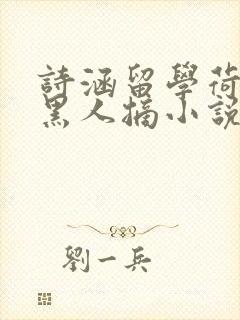 詩涵留學荷
黑人摘小說
劉一兵